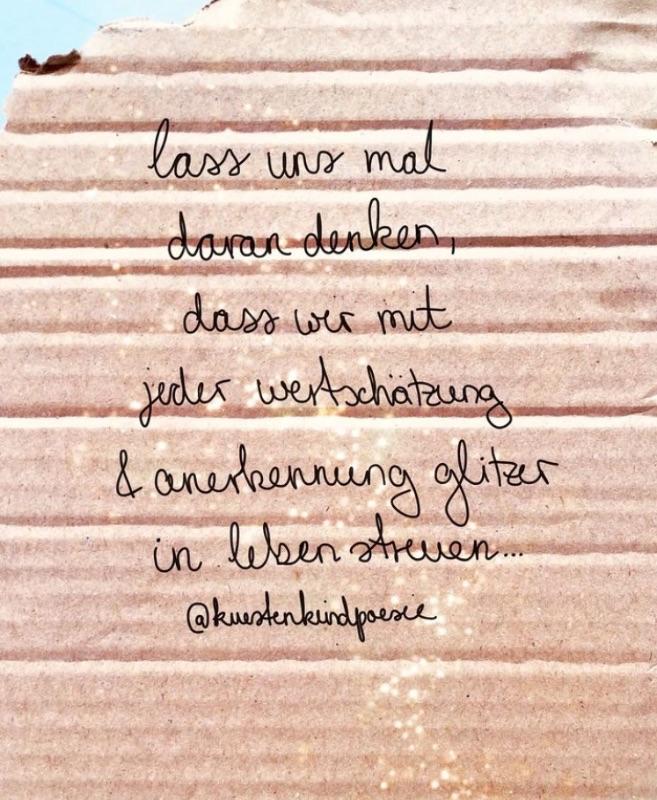 lass uns mal
daran denken,
dass wir mit
jeder wertschätzung
& anerkennung glitzer
in leben streuen...
@kuestenkindpoesie